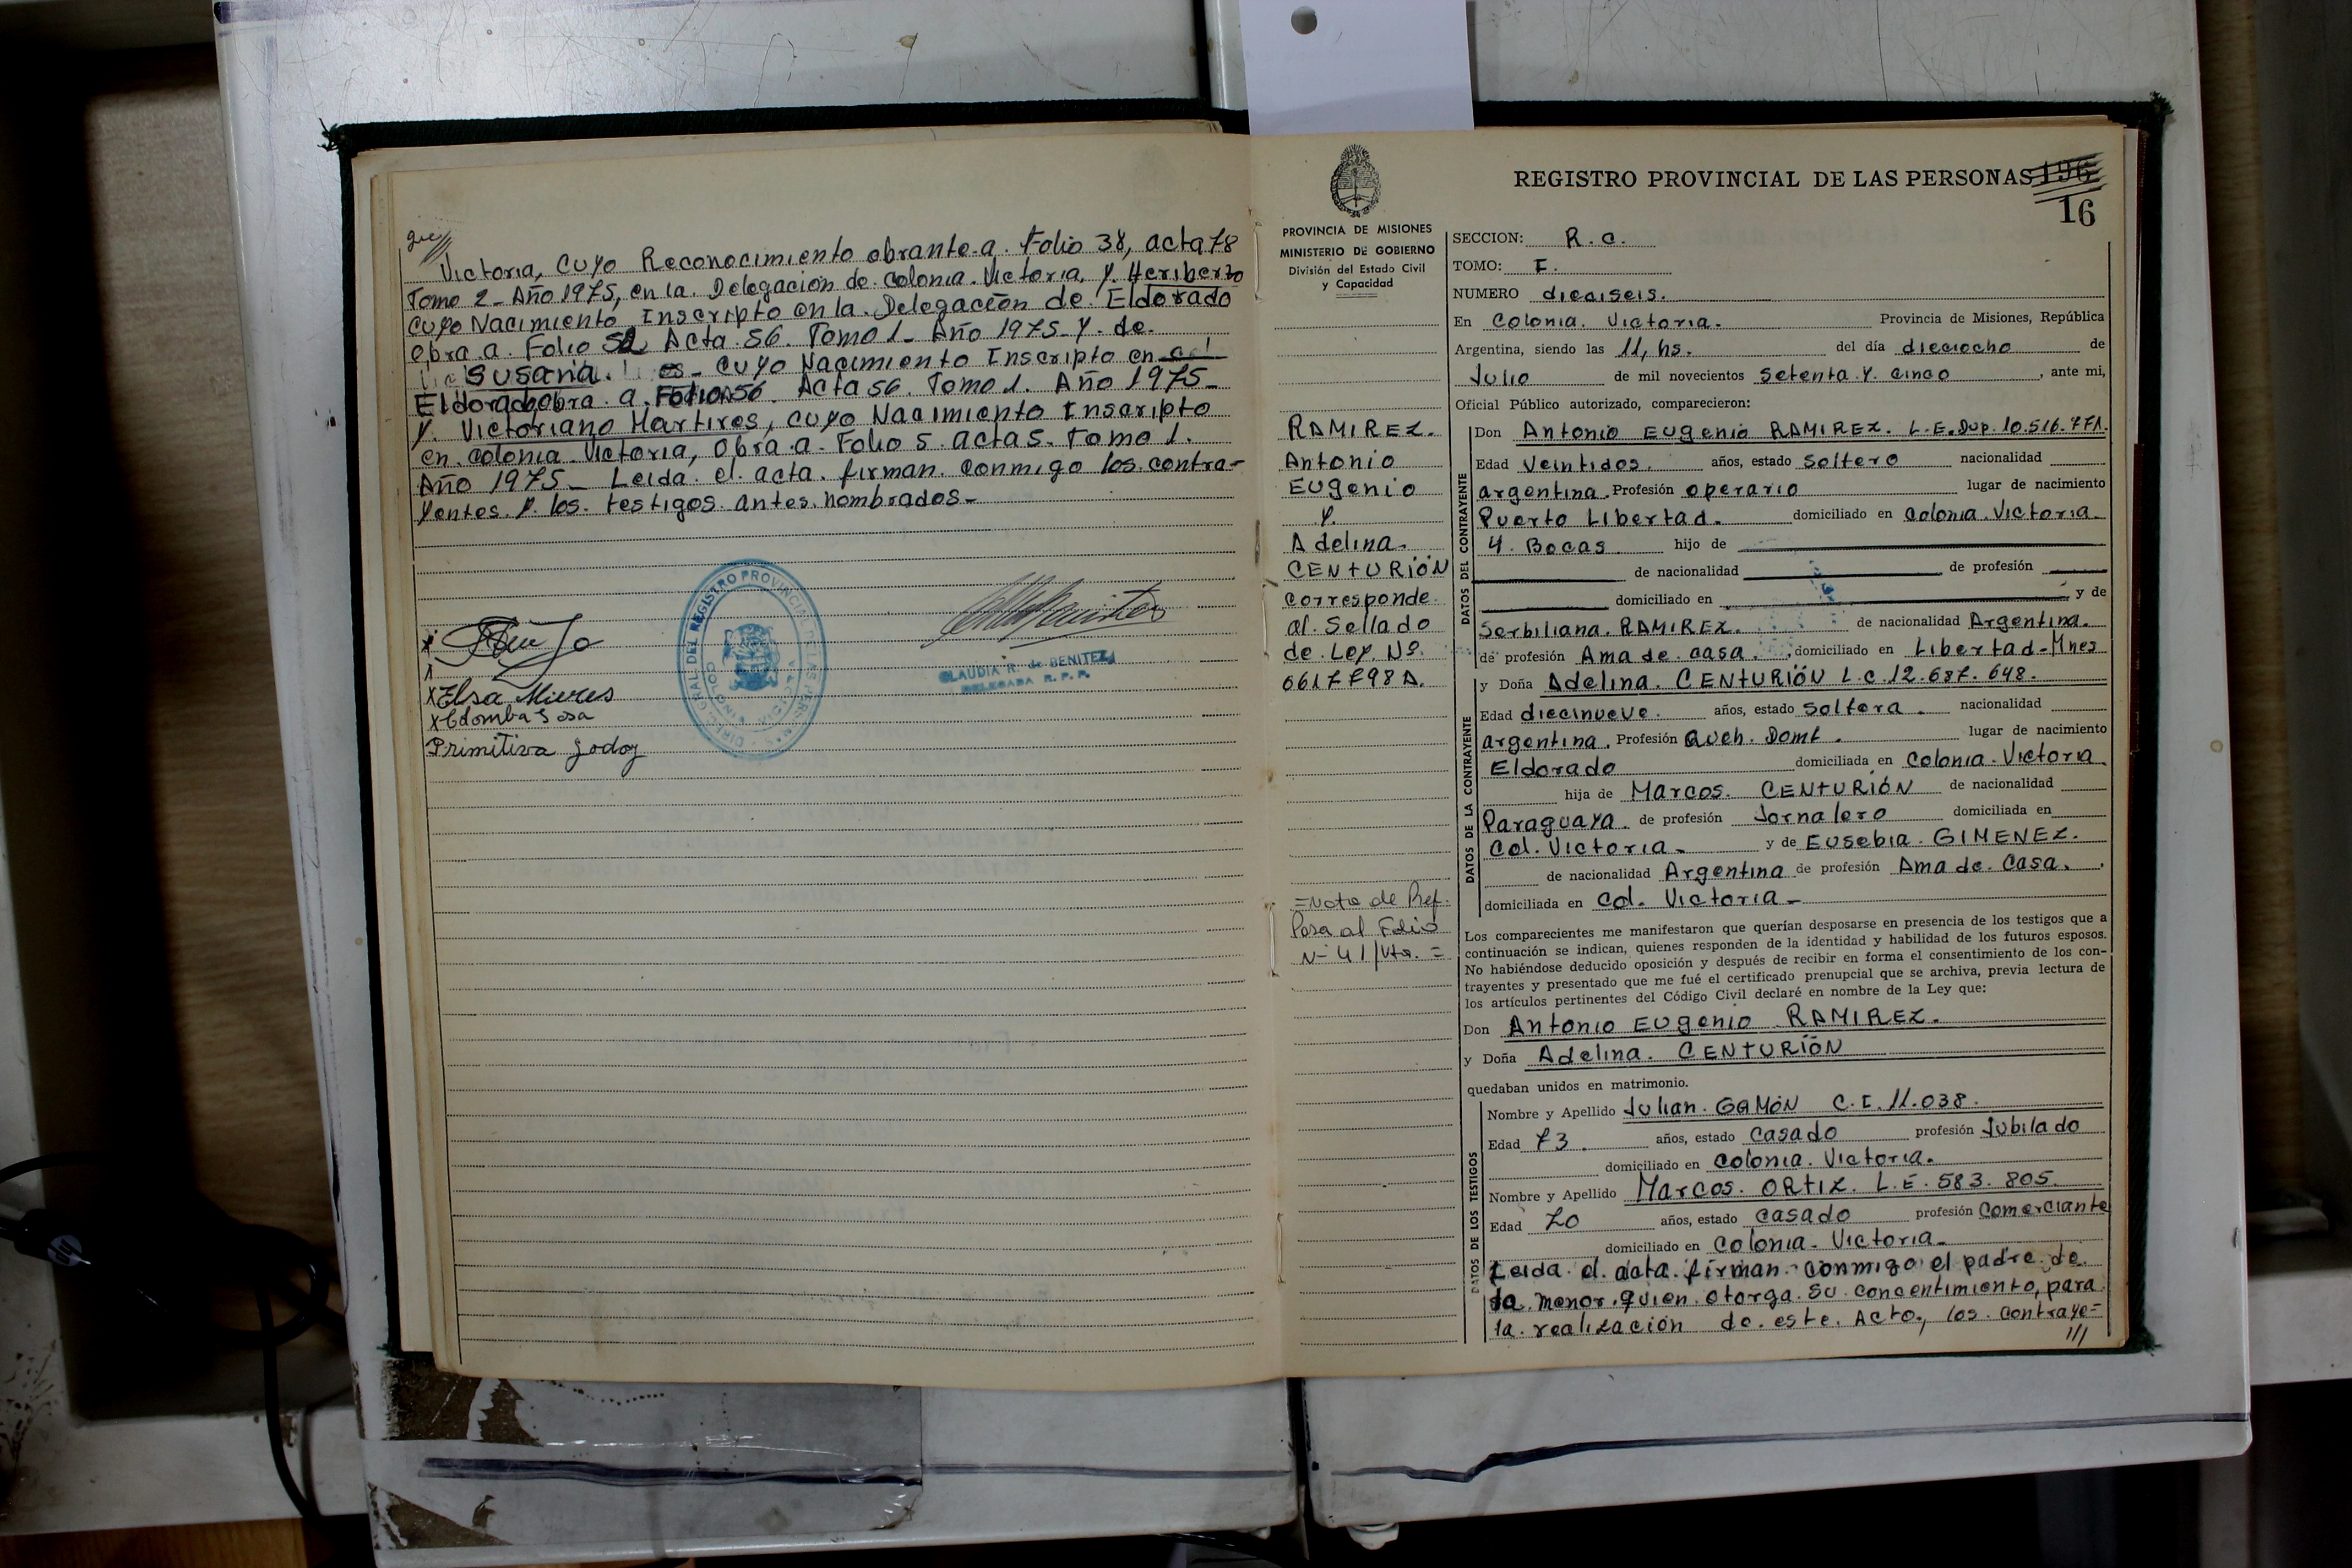 Victoria, cuyo Reconocimiento obrante a. Folio 38, acta 78
Tomo 2- Año 1975, en la. Delegación de. Colonia. Victoria, y. Heriberto
cuyo Nacimiento Inscripto en la. Delegación de. Eldorado
obra. a. Folio 52 Acta. 56. Tomo 1. Año 1975- y. de.
Susana. cuyo Nacimiento Inscripto en
Eldorado, obra. a. Folio 56. Acta 56. Tomo 1. Año 1975-
y. Victoriano Martires, cuyo Nacimiento Inscripto
en. colonia. Victoria, obra. a. Folio 5. acta 5. Tomo 1.
Año 1975- Leida. el. acta. firman. conmigo los. contra-
yentes. y. los. testigos. antes. nombrados-
X
X Elsa Mieres
X Colomba Sosa
Primitiva Godoy
CLAUDIA R. de BENITEZ
DELEGADA R. P. P.
PROVINCIA DE MISIONES
MINISTERIO DE GOBIERNO
División del Estado Civil
y Capacidad
RAMIREZ.
Antonio
Eugenio
y.
Adelina.
CENTURIÓN
Corresponde
al. Sellado
de. Ley. Nº.
0617798 A.
=Nota de Ref.
Pasa al Folio
Nº 41/Vto. =
REGISTRO PROVINCIAL DE LAS PERSONAS 196
16
SECCION: R. C.
TOMO: I.
NUMERO dieciseis.
En Colonia. Victoria. Provincia de Misiones, República
Argentina, siendo las 11, hs. del día dieciocho de
Julio de mil novecientos setenta y. cinco, ante mi,
Oficial Público autorizado, comparecieron:
DATOS DEL CONTRAYENTE
Don Antonio Eugenio RAMIREZ. L.E. Dup. 10.516.771.
Edad Veintidos. años, estado Soltero nacionalidad
argentina. Profesión operario lugar de nacimiento
Puerto Libertad. domiciliado en Colonia. Victoria.
4. Bocas hijo de
de nacionalidad de profesión
domiciliado en y de
Serbiliana. RAMIREZ. de nacionalidad Argentina.
de profesión Ama de. casa. domiciliado en Libertad-Mnes
DATOS DE LA CONTRAYENTE
y Doña Adelina. CENTURIÓN L.C. 12.687. 648.
Edad diecinueve. años, estado soltera. nacionalidad
argentina. Profesión Queh. Domt. lugar de nacimiento
Eldorado domiciliada en Colonia. Victoria
hija de Marcos. CENTURIÓN de nacionalidad
Paraguaya. de profesión Jornalero domiciliada en
Col. Victoria. y de Eusebia. GIMENEZ.
de nacionalidad Argentina de profesión Ama de. Casa.
domiciliada en Col. Victoria-
Los comparecientes me manifestaron que querían desposarse en presencia de los testigos que a
continuación se indican, quienes responden de la identidad y habilidad de los futuros esposos.
No habiéndose deducido oposición y después de recibir en forma el consentimiento de los con-
trayentes y presentado que me fué el certificado prenupcial que se archiva, previa lectura de
los artículos pertinentes del Código Civil declaré en nombre de la Ley que:
Don Antonio Eugenio RAMIREZ.
y Doña Adelina. CENTURIÓN
quedaban unidos en matrimonio.
DATOS DE LOS TESTIGOS
Nombre y Apellido Julian. GAMÓN C.I. 11.038.
Edad 73. años, estado Casado profesión Jubilado
domiciliado en Colonia. Victoria.
Nombre y Apellido Marcos. ORTIZ. L.E. 583. 805.
Edad 70 años, estado Casado profesión Comerciante
domiciliado en Colonia. Victoria-
Leida. el. acta. firman. conmigo el padre. de
la. menor. quien. otorga. su. concentimiento, para
la. realización de. este. Acto, los. contraye=
///